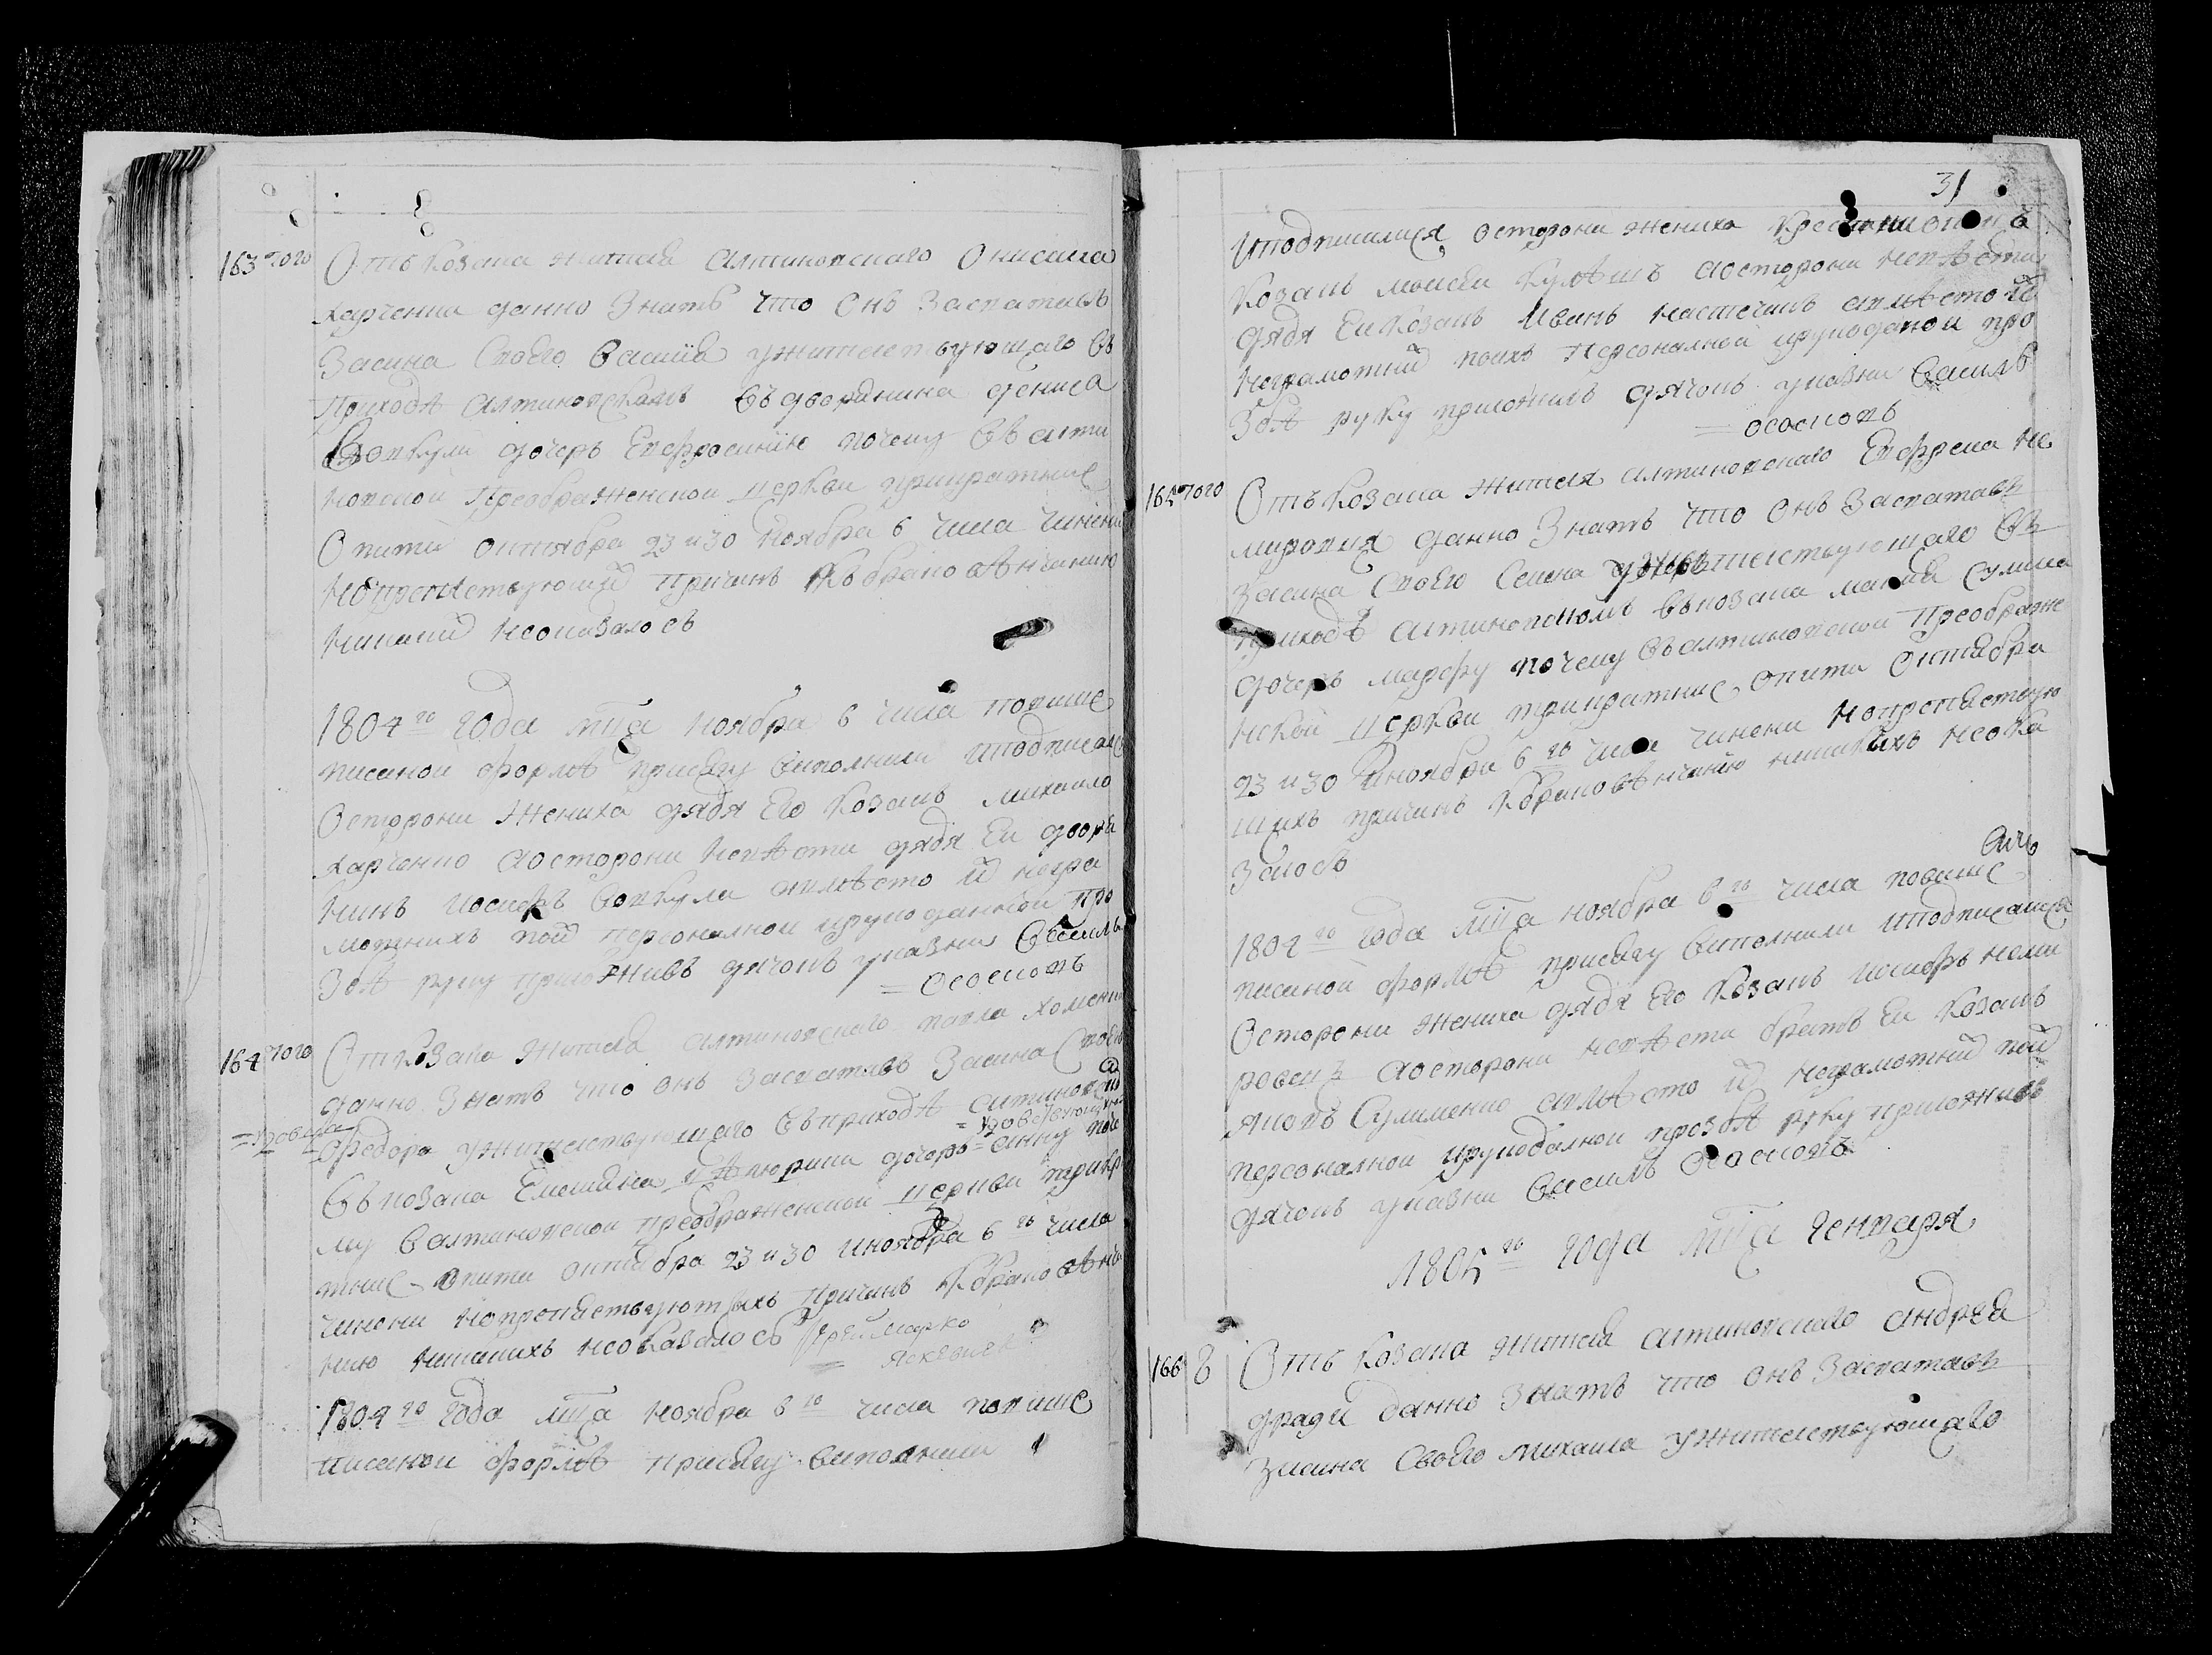 163 того Отъ козака жителя Алтиновского Онисима
Харченка данно знать что онъ засватавъ
засина своего василя ужителствующаго въ
приходѣ Алтиновскомъ въ дворянина дениса
дочерь Евфросинию почему въ алти
новской Преображенской церкви прикратние
опити октября 23 и 30 ноября 6 числа чинени
нопрепятствующий причинъ ко браковѣнчанию
никакий неоказалось
1804 го года мца ноября 6 числа повише
писаной формѣ присягу виполнили иподписалис
Осторони жениха дядя Его козакъ михайло
харченко аосторони невѣсти дядя Еи дворя
нинъ иосифъ вовкула авмѣсто й негра
мотнихъ пой персоналной ирукоданной про
збѣ руку приложивъ дячокъ указни Василь
= Ососковъ
164 того От козака жителя алтиновского павла хоменка
данно знать что онъ засватавъ засина своего
=вдовца Федора ужителствующаго въприходѣ алтиновско
= вдовствующую
въ козака Емелияна дочерь = анну поче
му валтиновской преображенской церкви трикра
тние опити октября 23 и 30 иноября 6 го числа
чинени нопрепятствуютихъ причинъ кобраковѣнча
нию никакихъ неоказалось иерей марко
=
1804 го года мца ноября 6 го числа повише
писаной формѣ присягу виполнили
31
иподписалися осторони жениха
козакъ моисей кулѣшъ аосторони невѣсти
дядя Еи козакъ Иванъ авмѣсто й
неграмотний поихъ персоналной ирукоданой про
збѣ руку приложилъ дячокъ указни василь
= ососковъ
165 того Отъ козака жителя алтиновского Евфрема не
мировця данно знать что онъ засватавъ
засина своего Семена ужителствующаго въ
приходѣ алтиновскомъ въкозака Сулима
дочерь марфу почему въалтиновской преображе
нской церкви трикратние опити октября
23 и 30 иноября 6 го числа чинени нопрепятствую
щихъ причинъ кобраковѣнчанию никакихъ неока
залось
више
1804 го года мца ноября 6 го числа повише
писаной формѣ присягу виполнили иподписалися
Осторони жениха дядя Его козакъ иосифъ неми
ровецъ аосторони невѣсти братъ Еи козакъ
яковъ Сулименко авмѣсто й неграмотний пой
персоналной ирукоданной прозбѣ руку приложивъ
дячокъ указни василь ососковъ
1805 го года мца Генваря
166 8 Отъ козака жителя алтиновского андрея
данно знать что онъ засватавъ
засина своего михаила ужителствующаго